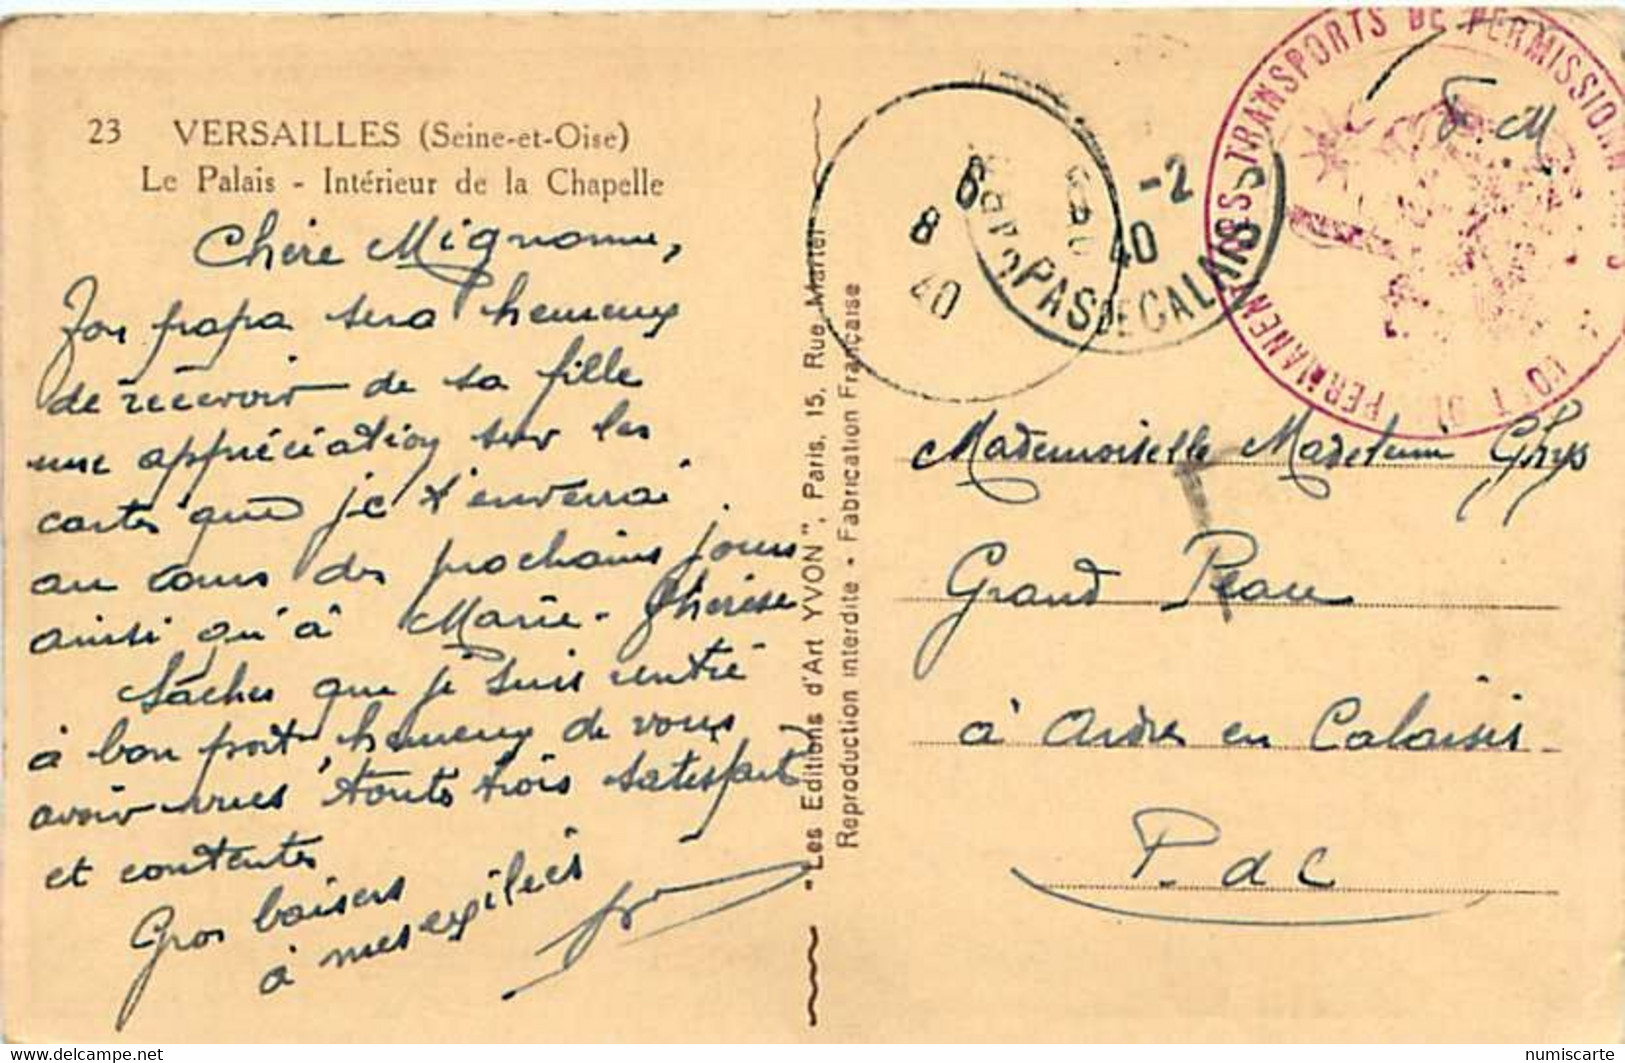 23 VERSAILLES (Seine-et-Oise)
Le Palais - Intérieur de la Chapelle
Chère Mignonne,
Ton papa sera heureux
de recevoir de sa fille
une appréciation sur les
cartes que je t'enverrai
au cours des prochains jours
ainsi qu'à Marie-Thérèse
Saches que je suis rentré
à bon port, heureux de vous
avoir vues toutes trois satisfaites
et contentes
Gros baisers
à mes exilées
"Les Editions d'Art YVON", Paris, 15, Rue Martel
Reproduction interdite - Fabrication Française
6
8
40
-2
40
PAS DE CALAIS
TRANSPORTS DE PERMISSIONNAIRES
PERMANENT
F. M.
T
Mademoiselle Madeleine Ghys
Grand Place
à Ardres en Calaisis
P. d C
numiscarte